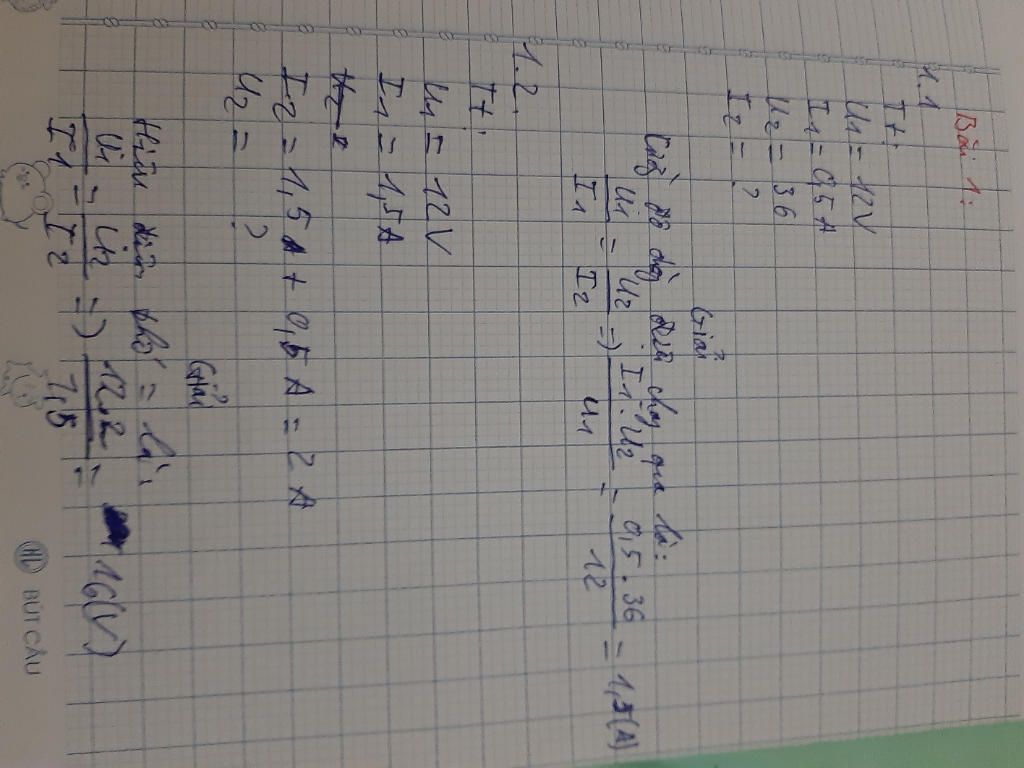 Bài 1:
1.1
Tt:
U1 = 12V
I1 = 0,5A
U2 = 36
I2 = ?
Giải
Cường độ dòng điện chạy qua là:
U1/I1 = U2/I2 => I1.U2/U1 = 0,5.36/12 = 1,5(A)
1.2.
Tt:
U1 = 12V
I1 = 1,5A
I2 = 1,5A + 0,5A = 2A
U2 = ?
Giải
Hiệu điện thế là:
U1/I1 = U2/I2 => 12.2/1,5 = 16(V)
BÚT CÂU